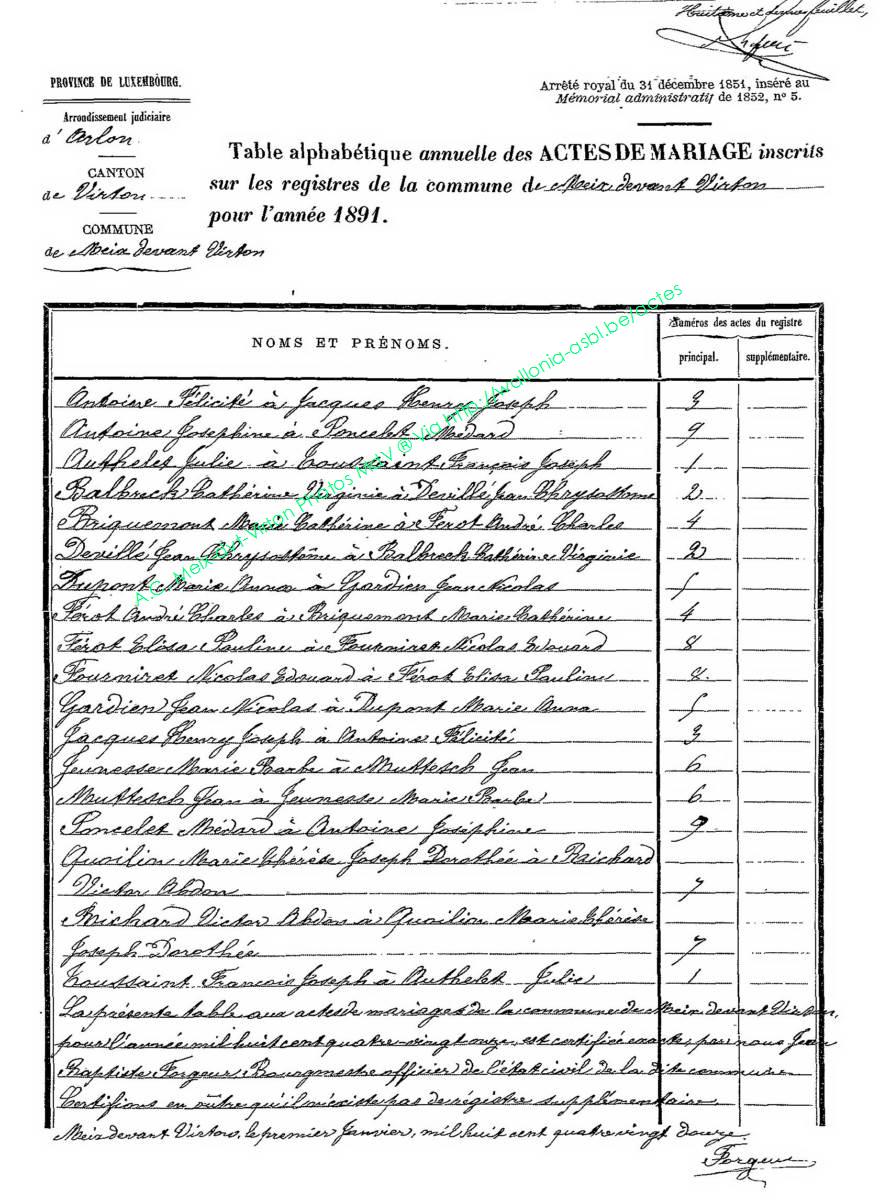 Huitième et dernier feuillet,
PROVINCE DE LUXEMBOURG.
Arrêté royal du 31 décembre 1851, inséré au
Mémorial administratif de 1852, n° 5.
Arrondissement judiciaire
d'Arlon.
CANTON
de Virton
COMMUNE
de Meix devant Virton
Table alphabétique annuelle des ACTES DE MARIAGE inscrits
sur les registres de la commune de Meix devant Virton
pour l'année 1891.
NOMS ET PRÉNOMS.
Numéros des actes du registre
principal. supplémentaire.
Antoine Félicité à Jacques Henry Joseph 3
Antoine Josephine à Poncelet Médard 9
Authelet Julie à Toussaint François Joseph 1
Balbreck Cathérine Virginie à Devillé Jean Chrysostome 2
Briquemont Marie Cathérine à Férot André Charles 4
Devillé Jean Chrysostôme à Balbreck Cathérine Virginie 2
Dupont Marie Anna à Gardien Jean Nicolas 5
Férot André Charles à Briquemont Marie Cathérine 4
Férot Elisa Pauline à Fourniret Nicolas Edouard 8
Fourniret Nicolas Edouard à Férot Elisa Pauline 8
Gardien Jean Nicolas à Dupont Marie Anna 5
Jacques Henry Joseph à Antoine Félicité 3
Jeunesse Marie Barbe à Muttesch Jean 6
Muttesch Jean à Jeunesse Marie Barbe 6
Poncelet Médard à Antoine Joséphine 9
Quoilin Marie Thérèse Joseph Dorothée à Richard
Victor Abdon 7
Richard Victor Abdon à Quoilin Marie Thérèse
Joseph Dorothée 7
Toussaint François Joseph à Authelet Julie 1
La présente table aux actes de mariages de la commune de Meix devant Virton,
pour l'année mil huit cent quatre-vingt onze, est certifiée exacte, par nous Jean
Baptiste Forgeur, Bourgmestre officier de l'état civil de la dite commune
Certifions en oûtre qu'il n'existe pas de régistre supplémentaire.
Meix devant Virton, le premier Janvier, mil huit cent quatre vingt douze.
Forgeur
A.C. Meix-Dvt-Virton Photos M&V ® Via http://wallonia-asbl.be/actes